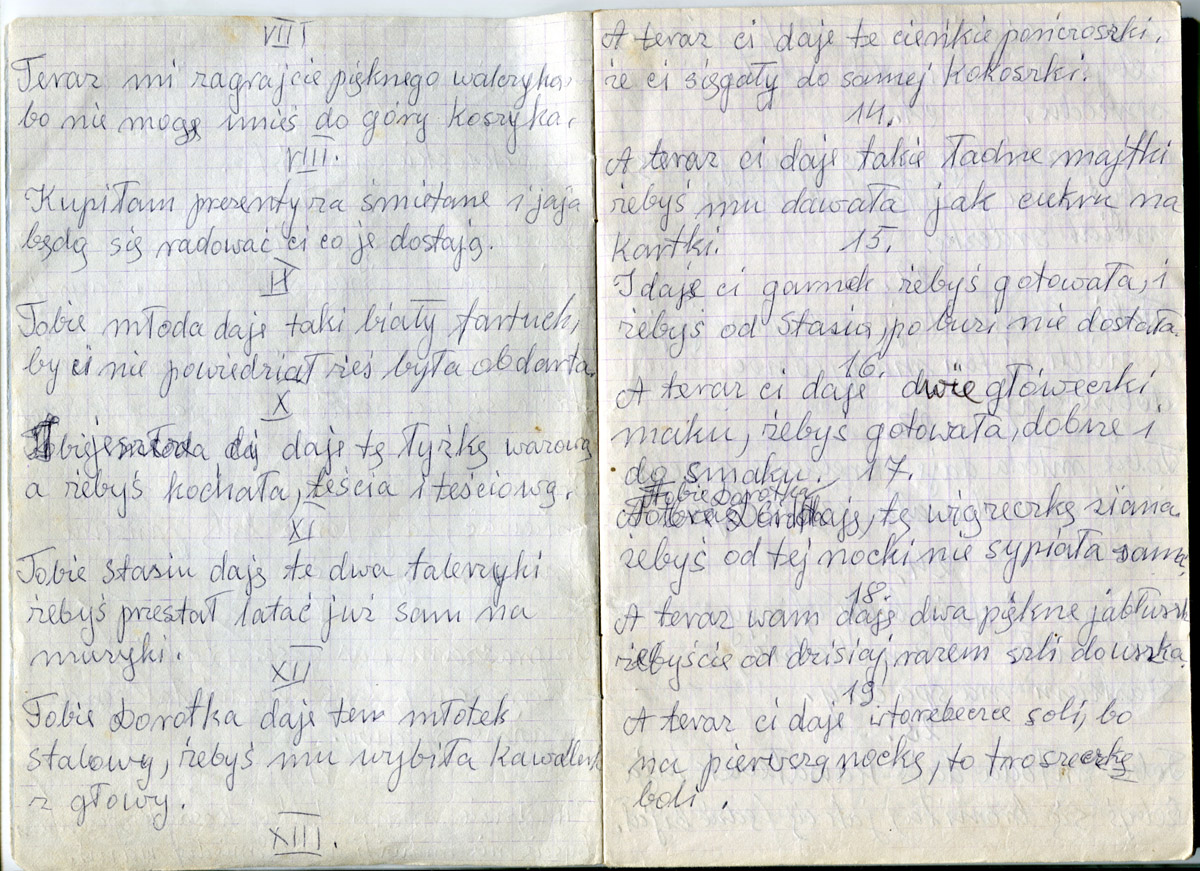 VIII
Teraz mi zagrajcie pięknego walczyka,
bo nie mogę unieś do góry Koszyka.
VIII.
Kupiłam prezenty za śmietane i jaja
będą się radować ci co je dostają.
IX
Tobie młoda daje taki biały fartuch,
by ci nie powiedział żeś była obdarta.
X
daje tę łyżkę warową
a żebyś kochała, teścia i teściową.
XI
Tobie Stasiu daję te dwa talerzyki
żebyś przestał latać już sam na
muzyki.
XII
Tobie Dorotka daje ten młotek
stalowy, żebyś mu wybiła Kawalerk
z głowy.
XIII.
A teraz ci daje te cieńkie pończoszki,
że ci sięgały do samej Kokoszki.
14.
A teraz ci daje takie ładne majtki
żebyś mu dawała jak cukru na
Kartki. 15.
I daję ci garnek żebyś gotowała, i
żebyś od Stasia, po buzi nie dostała.
16.
A teraz ci daje dwie główeczki
maku, żebyś gotowała, dobrze i
do smaku. 17.
Tobie Dorotka
daję, tę wiązeczkę siana
żebyś od tej nocki nie sypiała sama.
18.
A teraz wam daję dwa piękne jabłuszk
żebyście od dzisiaj, razem szli do łuszka.
19.
A teraz ci daje torebecce soli, bo
na pierwszą nockę, to troszeczkę
boli.